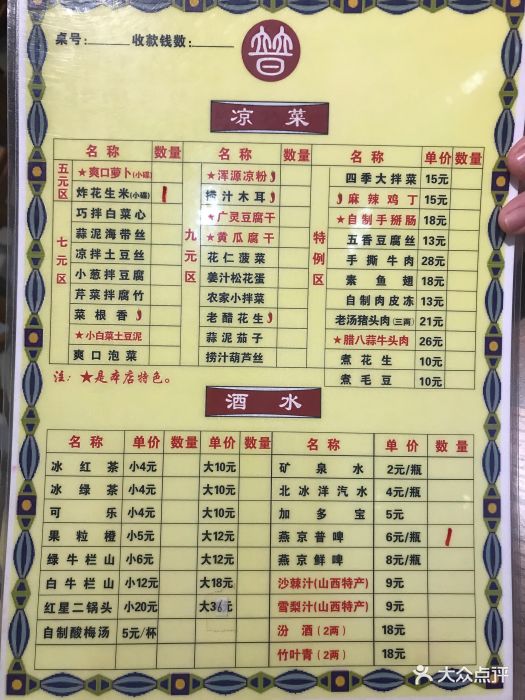 桌号：______ 收款钱数：______
晋
凉菜
名称 数量 名称 数量 名称 单价 数量
五元区
★爽口萝卜(小碟)
炸花生米(小碟)
七元区
巧拌白菜心
蒜泥海带丝
凉拌土豆丝
小葱拌豆腐
芹菜拌腐竹
菜根香
★小白菜土豆泥
爽口泡菜
九元区
★浑源凉粉
捞汁木耳
★广灵豆腐干
★黄瓜腐干
花仁菠菜
姜汁松花蛋
农家小拌菜
老醋花生
蒜泥茄子
捞汁葫芦丝
特例区
四季大拌菜 15元
麻辣鸡丁 15元
★自制手掰肠 18元
五香豆腐丝 13元
手撕牛肉 28元
素鱼翅 18元
自制肉皮冻 13元
老汤猪头肉(三两) 21元
★腊八蒜牛头肉 26元
煮花生 10元
煮毛豆 10元
注：★是本店特色。
酒水
名称 单价 数量 单价 数量 名称 单价 数量
冰红茶 小4元 大10元 矿泉水 2元/瓶
冰绿茶 小4元 大10元 北冰洋汽水 4元/瓶
可乐 小4元 大10元 加多宝 5元
果粒橙 小5元 大12元 燕京普啤 6元/瓶
绿牛栏山 小6元 大12元 燕京鲜啤 8元/瓶
白牛栏山 小12元 大18元 沙棘汁(山西特产) 9元
红星二锅头 小20元 大36元 雪梨汁(山西特产) 9元
自制酸梅汤 5元/杯 汾酒(2两) 18元
竹叶青(2两) 18元
大众点评